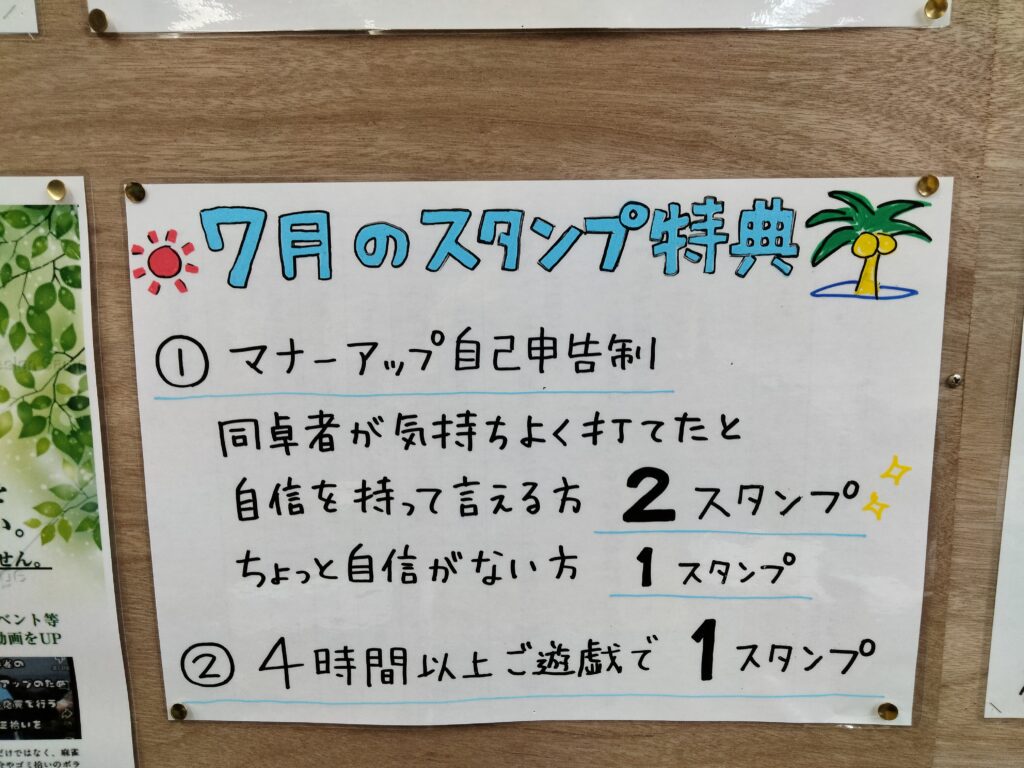 7月のスタンプ特典
① マナーアップ自己申告制
同卓者が気持ちよく打てたと
自信を持って言える方 2 スタンプ
ちょっと自信がない方 1 スタンプ
② 4時間以上ご遊戯で 1 スタンプ
い。
せん。
ベント等
動画をUP
アップのため
だけではなく、麻雀